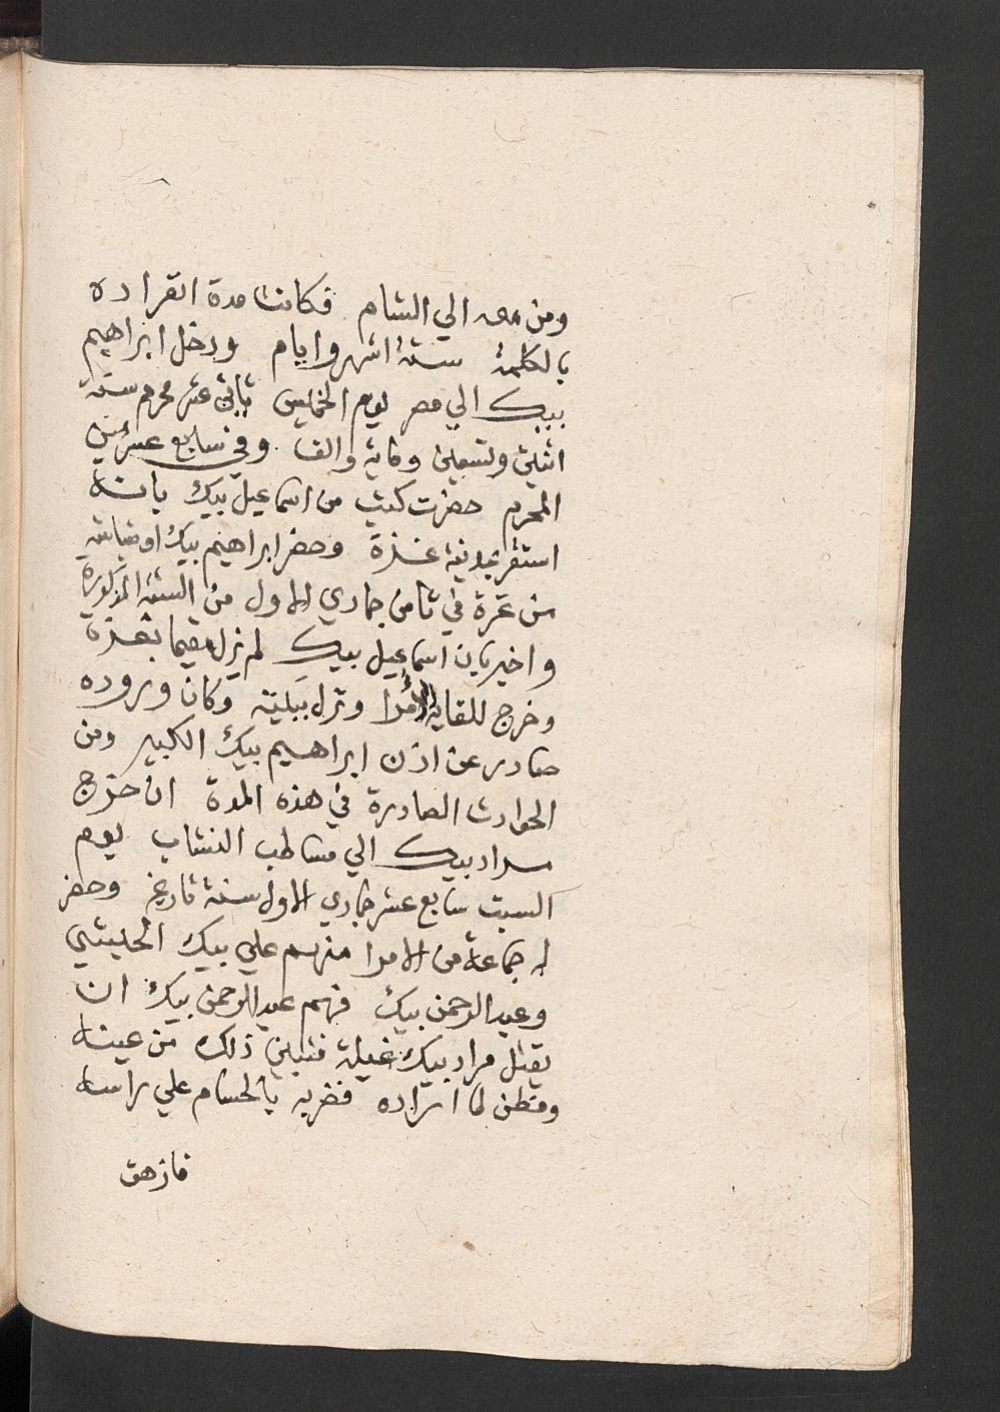 ومن معه الي الشام فكانت مدة انفراده
بالكلمة ستة اشهر وايام ودخل ابراهيم
بيك الي مصر يوم الخميس ثاني عشر محرم سنة
اثنين وتسعين وماية والف وفي سابع عشرين
المحرم حضرت كتب من اسماعيل بيك بانه
استقر بمدينة غزة وحضر ابراهيم بيك اوضباشه
من غزة في ثامن جمادي الاول من السنة المذكورة
واخبر بان اسماعيل بيك لم يزل مقيما بغزة
وخرج للقايه الامرا ونزل ببيته وكان وروده
صادر عن اذن ابراهيم بيك الكبير ومن
الحوادث الصادرة في هذه المدة ان خرج
مراد بيك الي مساطب النشاب يوم
السبت سابع عشر جمادي الاول سنة تاريخ وحضر
له جماعة من الامرا منهم علي بيك الحبشي
وعبد الرحمن بيك فهم عبد الرحمن بيك ان
يقتل مراد بيك غيلة فتبين ذلك من عينه
وفطن لما اراده فضربه بالحسام علي راسه
فازهق